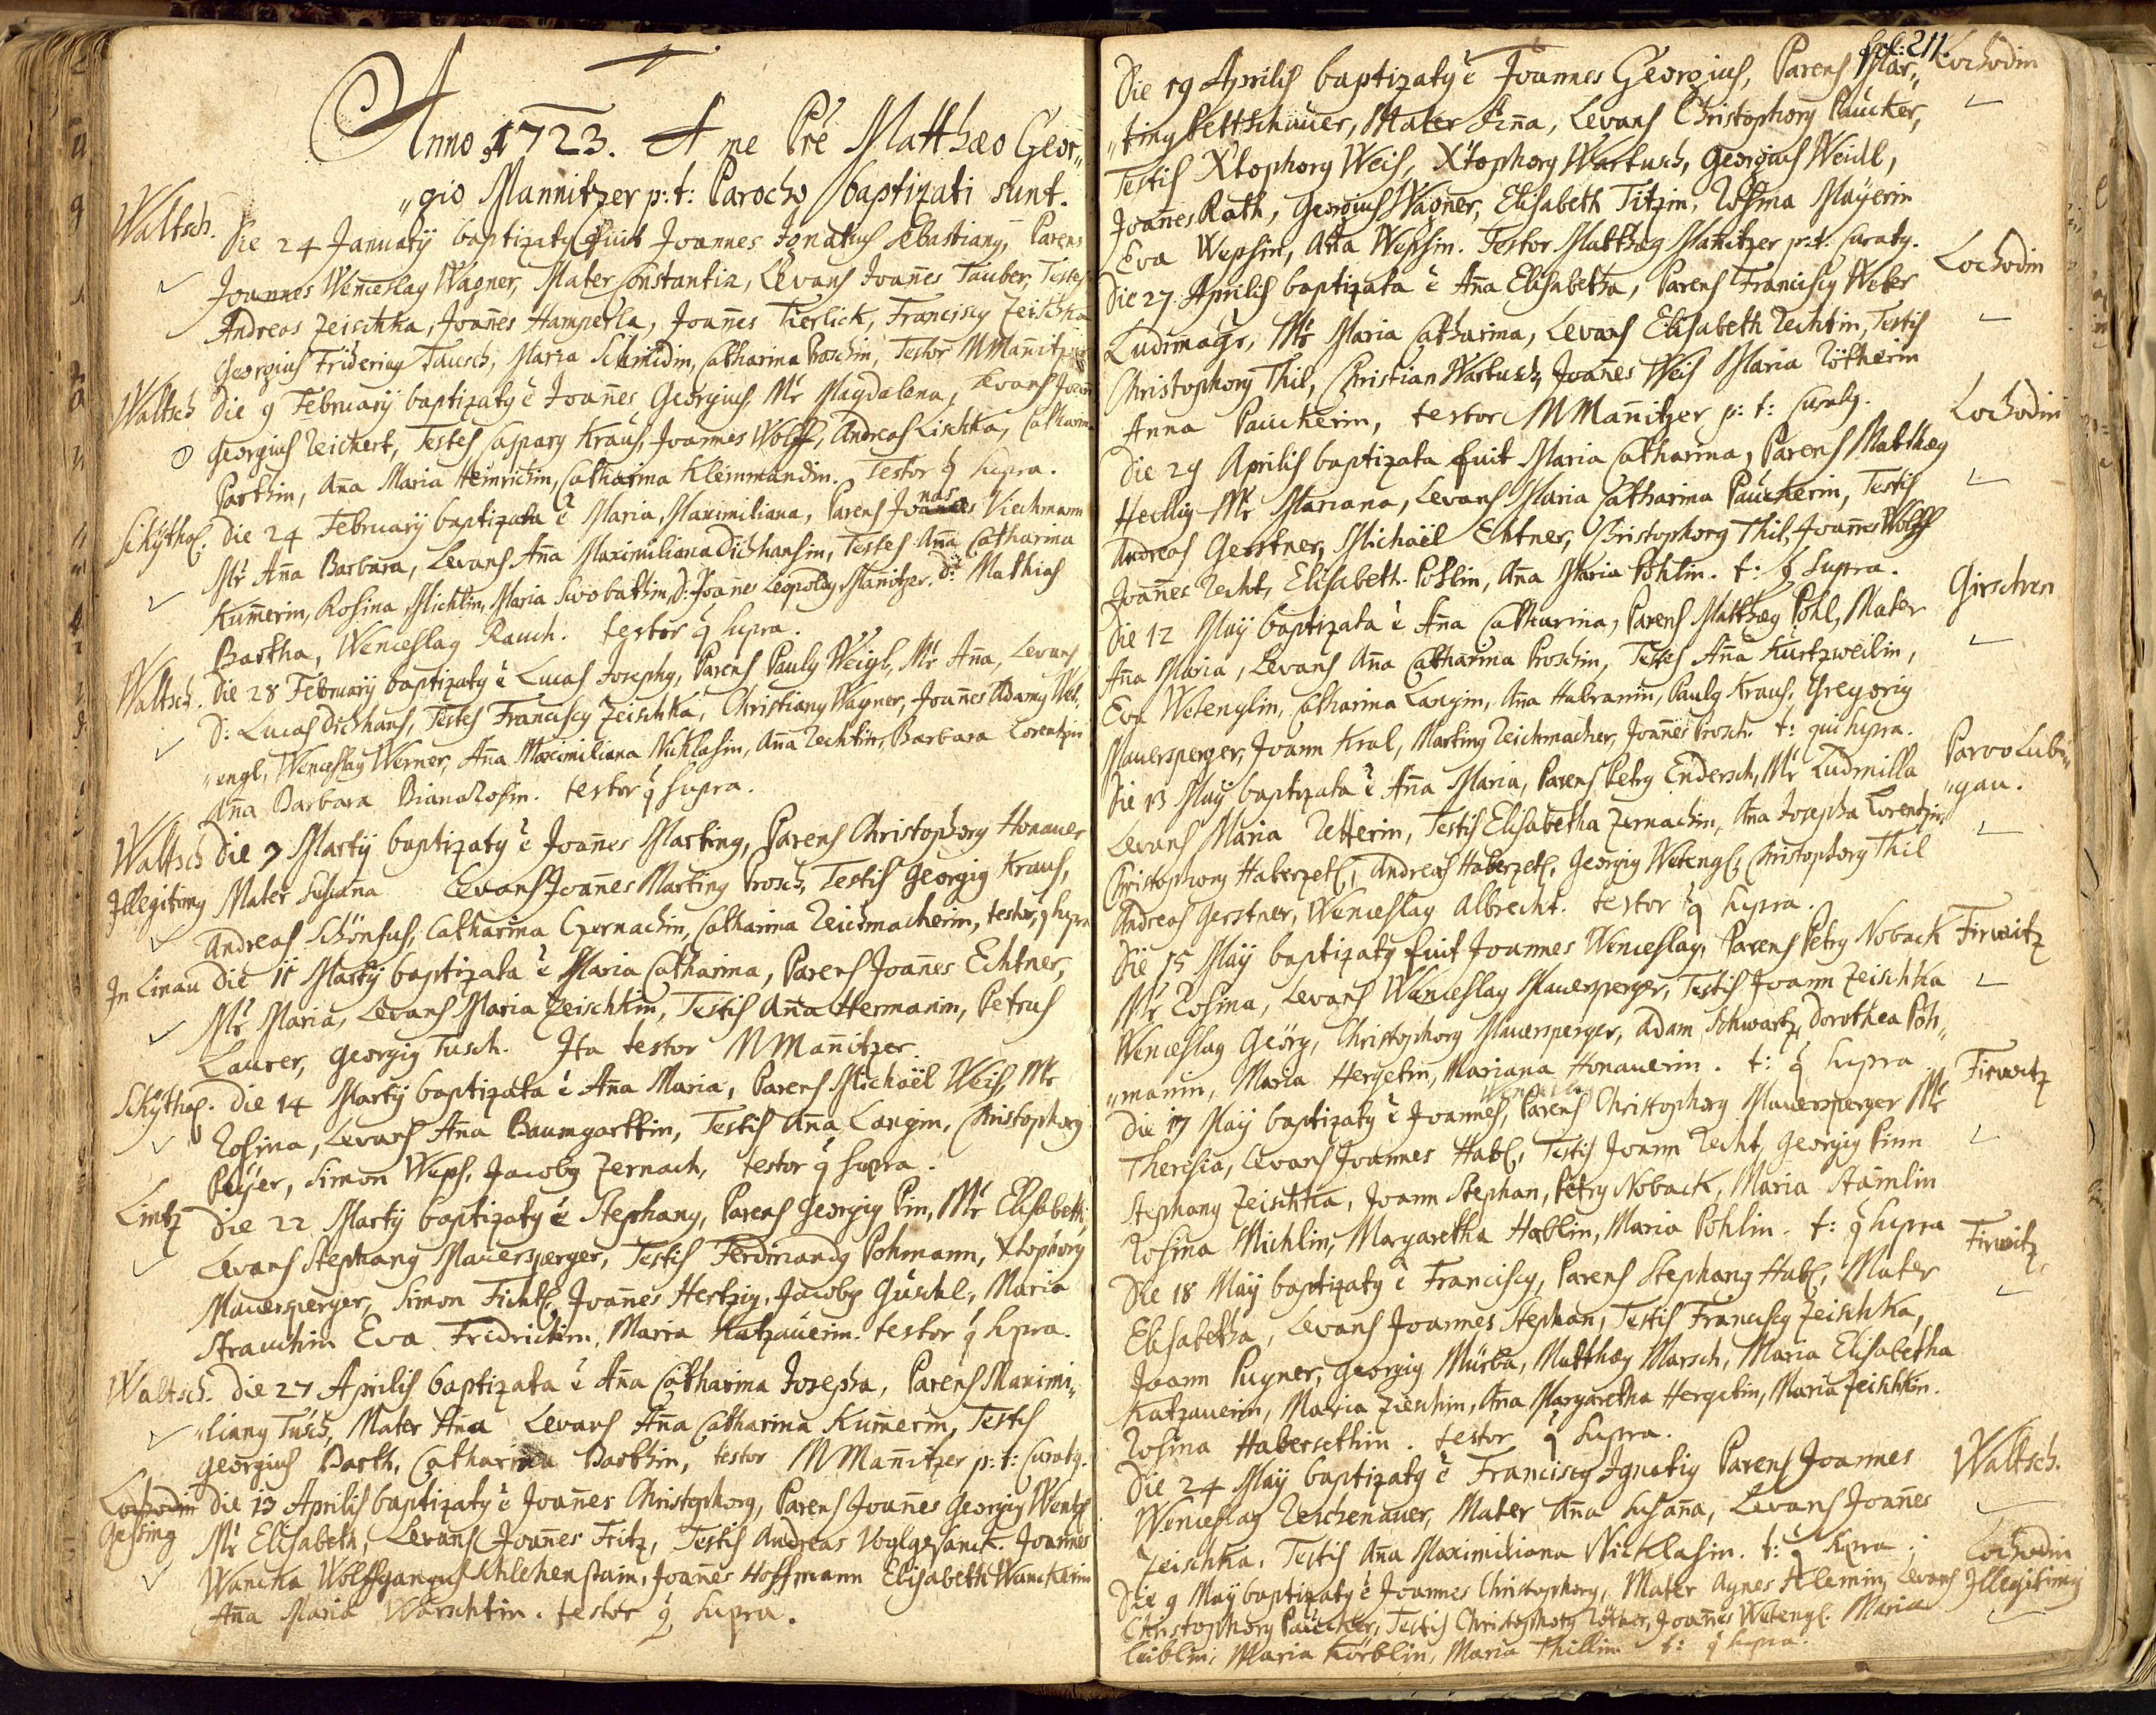 Anno 1723. A me Prē Matthæo Geor„
„gio Mannitzer p: t: Parocho baptizati sunt.
Waltsch. Die 24 Januarÿ baptizatq fuit Joannes Ignatius Sebastianq, Parens
Joannes Wenceslaq Wagner, Mater Constantia, Levans Joan̄es Tauber, Testes
Andreas Zeischka, Joan̄es Hamperla, Joan̄es Tierlick, Franciscq Zeischka
Georgius Fridericq Tausch, Maria Schmidin, Catharina Proschin, Testor MMan̄itzer
Waltsch Die 9 Februarÿ baptizatq ē Joan̄es Georgius, Mr̄ Magdalena, Levans Joan̄
Georgius Reichert, Testes Casparq Kraus, Joannes Wolff, Andreas Lischka, Catharin
Parthin, An̄a Maria Heinrichin, Catharina Kleinmandin. Testor q̄ supra.
Schÿthof. Die 24 Februarÿ baptizata ē Maria, Maximiliana, Parens Jonas Viechmann
Mr̄ An̄a Barbara, Levans An̄a Maximiliana Dichansin, Testes An̄a Catharina
Kum̄erin, Rosina Michlin, Maria Swobathin, D: Joan̄es Leopoldq Man̄itzer. D: Mathias
Bartha, Wenceslaq Rauch. testor q̄ supra.
Waltsch. Die 28 Februarÿ baptizatq ē Lucas Josephq, Parens Paulq Weigl, Mr̄ An̄a, Levans
D: Lucas Dichans, Testes Franciscq Zeischka, Christianq Wagner, Joan̄es Adamq Wet„
„engl, Wenceslaq Werner, An̄a Maximiliana Nicklasin, An̄a Rechtin, Barbara Lorentzin
An̄a Barbara Bianarosin. testor q̄ supra.
Waltsch Die 7 Martÿ baptizatq ē Joan̄es Martinq, Parens Christophorq Honauer
Illegitimq Mater Susan̄a Levans Joan̄es Martinq Prosch, Testis Georgiq Kraus,
Andreas Schönfus, Catharina Czernachin, Catharina Reichmacherin, testor q̄ supra
In Linau Die 11 Martÿ baptizata ē Maria Catharina, Parens Joan̄es Echtner,
Mr̄ Maria, Levans Maria Zeischkin, Testis An̄a Hermanin, Petrus
Laurer, Georgiq Tusch. Ita testor MMan̄itzer
Schÿthof. Die 14 Martÿ baptizata ē An̄a Maria, Parens Michaël Weis, Mr̄
Rosina, Levans An̄a Baumgarttin, Testis An̄a Langin, Christophorq
Peÿer, Simon Weps, Jacobq Zernach, testor q̄ supra.
Lintz Die 22 Martÿ baptizatq ē Stephanq, Parens Georgiq Pin, Mr̄ Elisabeth,
Levans Stephanq Mauersperger, Testis Ferdinandq Pohmann, Xtophorq
Mauersperger, Simon Fichtl, Joan̄es Hertzig, Jacobq Guschl, Maria
Strauchin Eva Fridrichin, Maria Katzauerin. testor q̄ supra.
Waltsch. Die 27 Aprilis baptizata ē An̄a Catharina Josepha, Parens Maximi„
„lianq Tusch, Mater An̄a Levans An̄a Catharina Kum̄erin, Testis
Georgius Barth, Catharina Barthin, testor MMan̄itzer p: t: Curatq.
Lochodin Die 13 Aprilis baptizatq ē Joan̄es Christophorq, Parens Joan̄es Georgiq Wentz
Gessing Mr̄ Elisabeth, Levans Joan̄es Fritz, Testis Andreas Voglgesanck. Joannes
Wancka Wolffgangus Schlehenstain, Joan̄es Hoffmann Elisabeth Wanckein
An̄a Maria Warschtin. testor q̄ supra.
fol: 211.
Die 19 Aprilis baptizatq ē Joannes Georgius, Parens Mar„ Lochodin
„tinq Pettschauer, Mater An̄a, Levans Christophorq Paucker,
Testis Xtophorq Weis, Xtophorq Wartusch, Georgius Weidl,
Joan̄es Rath, Georgius Wagner, Elisabeth Titzin, Rosina Maÿerin
Eva Wepsin, An̄a Wepsin. Testor Matthæq Man̄itzer p: t: Curatq.
Die 27 Aprilis baptizata ē An̄a Elisabetha, Parens Franciscq Weber Lochodin
Ludimagr, Mr̄ Maria Catharina, Levans Elisabeth Rechtin, Testis
Christophorq Thil, Christian Wartusch, Joan̄es Weis Maria Rötherin
Anna Pauckerin, testor MMan̄itzer p: t: Curatq.
Die 29 Aprilis baptizata fuit Maria Catharina, Parens Matthæq Lochodin
Hecllig Mr̄ Mariana, Levans Maria Catharina Pauckerin, Testis
Andreas Gerstner, Michaël Echtner, Christophorq Thil, Joan̄es Wolff
Joan̄es Recht, Elisabeth Pohlin, An̄a Maria Pohlin. t: q̄ supra.
Die 12 Maÿ baptizata ē An̄a Catharina, Parens Matthæq Pohl, Mater Girschen
An̄a Maria, Levans An̄a Catharina Proschin, Testes An̄a Kurtzweilin,
Eva Wetenglin, Catharina Langin, An̄a Habramin, Paulq Kraus, Gregoriq
Mauersperger, Joann Kral, Martinq Reichmacher, Joan̄es Prosch. t: qui supra.
Die 13 Maÿ baptizata ē An̄a Maria, Parens Petrq Endersch, Mr̄ Ludmilla Parvo Lubi„
„gau.
Levans Maria Retterin, Testis Elisabetha Zernachin, An̄a Josepha Lorentzin,
Christophorq Haberzetl, Andreas Haberzetl, Georgiq Wetengl, Christophorq Thil
Andreas Gerstner, Wenceslaq Albrecht. testor q̄ supra.
Die 15 Maÿ baptizatq fuit Joannes Wenceslaq, Parens Petrq Noback Firwitz
Mr̄ Rosina, Levans Wenceslaq Mauersperger, Testis Joann Zeischka
Wenceslaq Georg, Christophorq Mauersperger, Adam Schwartz, Dorothea Poh„
„manin, Maria Hergetin, Mariana Honauerin. t: q̄ supra
Die 17 Maÿ baptizatq ē Joannes, Parens Christophorq Mauersperger Mr̄ Firwitz
Theresia, Levans Joannes Habl, Testis Joann Recht, Georgiq Pinn
Stephanq Zeischka, Joann Stephan, Petrq Noback, Maria Stamlin
Rosina Michlin, Margaretha Hablin, Maria Pohlin. t: q̄ supra
Die 18 Maÿ baptizatq ē Franciscq, Parens Stephanq Habl, Mater Firwitz
Elisabetha, Levans Joannes Stephan, Testis Franciscq Zeischka,
Joann Pugner, Georgiq Murba, Matthæq Marsch, Maria Elisabetha
Katzauerin, Maria Zieschin, An̄a Margaretha Hergetin, Maria Zeischkin.
Rosina Habersethin. testor q̄ supra.
Die 24 Maÿ baptizatq ē Franciscq Ignatiq Parens Joannes Waltsch.
Wenceslaq Reichenauer, Mater An̄a Susan̄a, Levans Joan̄es
Zeischka. Testis An̄a Maximiliana Nicklasin. t: q̄ supra.
Die 9 Maÿ baptizatq ē Joannes Christophorq, Mater Agnes Klemin, Levans Lochodin Illegitimq
Christophorq Paucker, Testis Christophorq Röther, Joan̄es Wetengl. Maria
Leiblin, Maria Körblin, Maria Thillin t: q̄ supra.